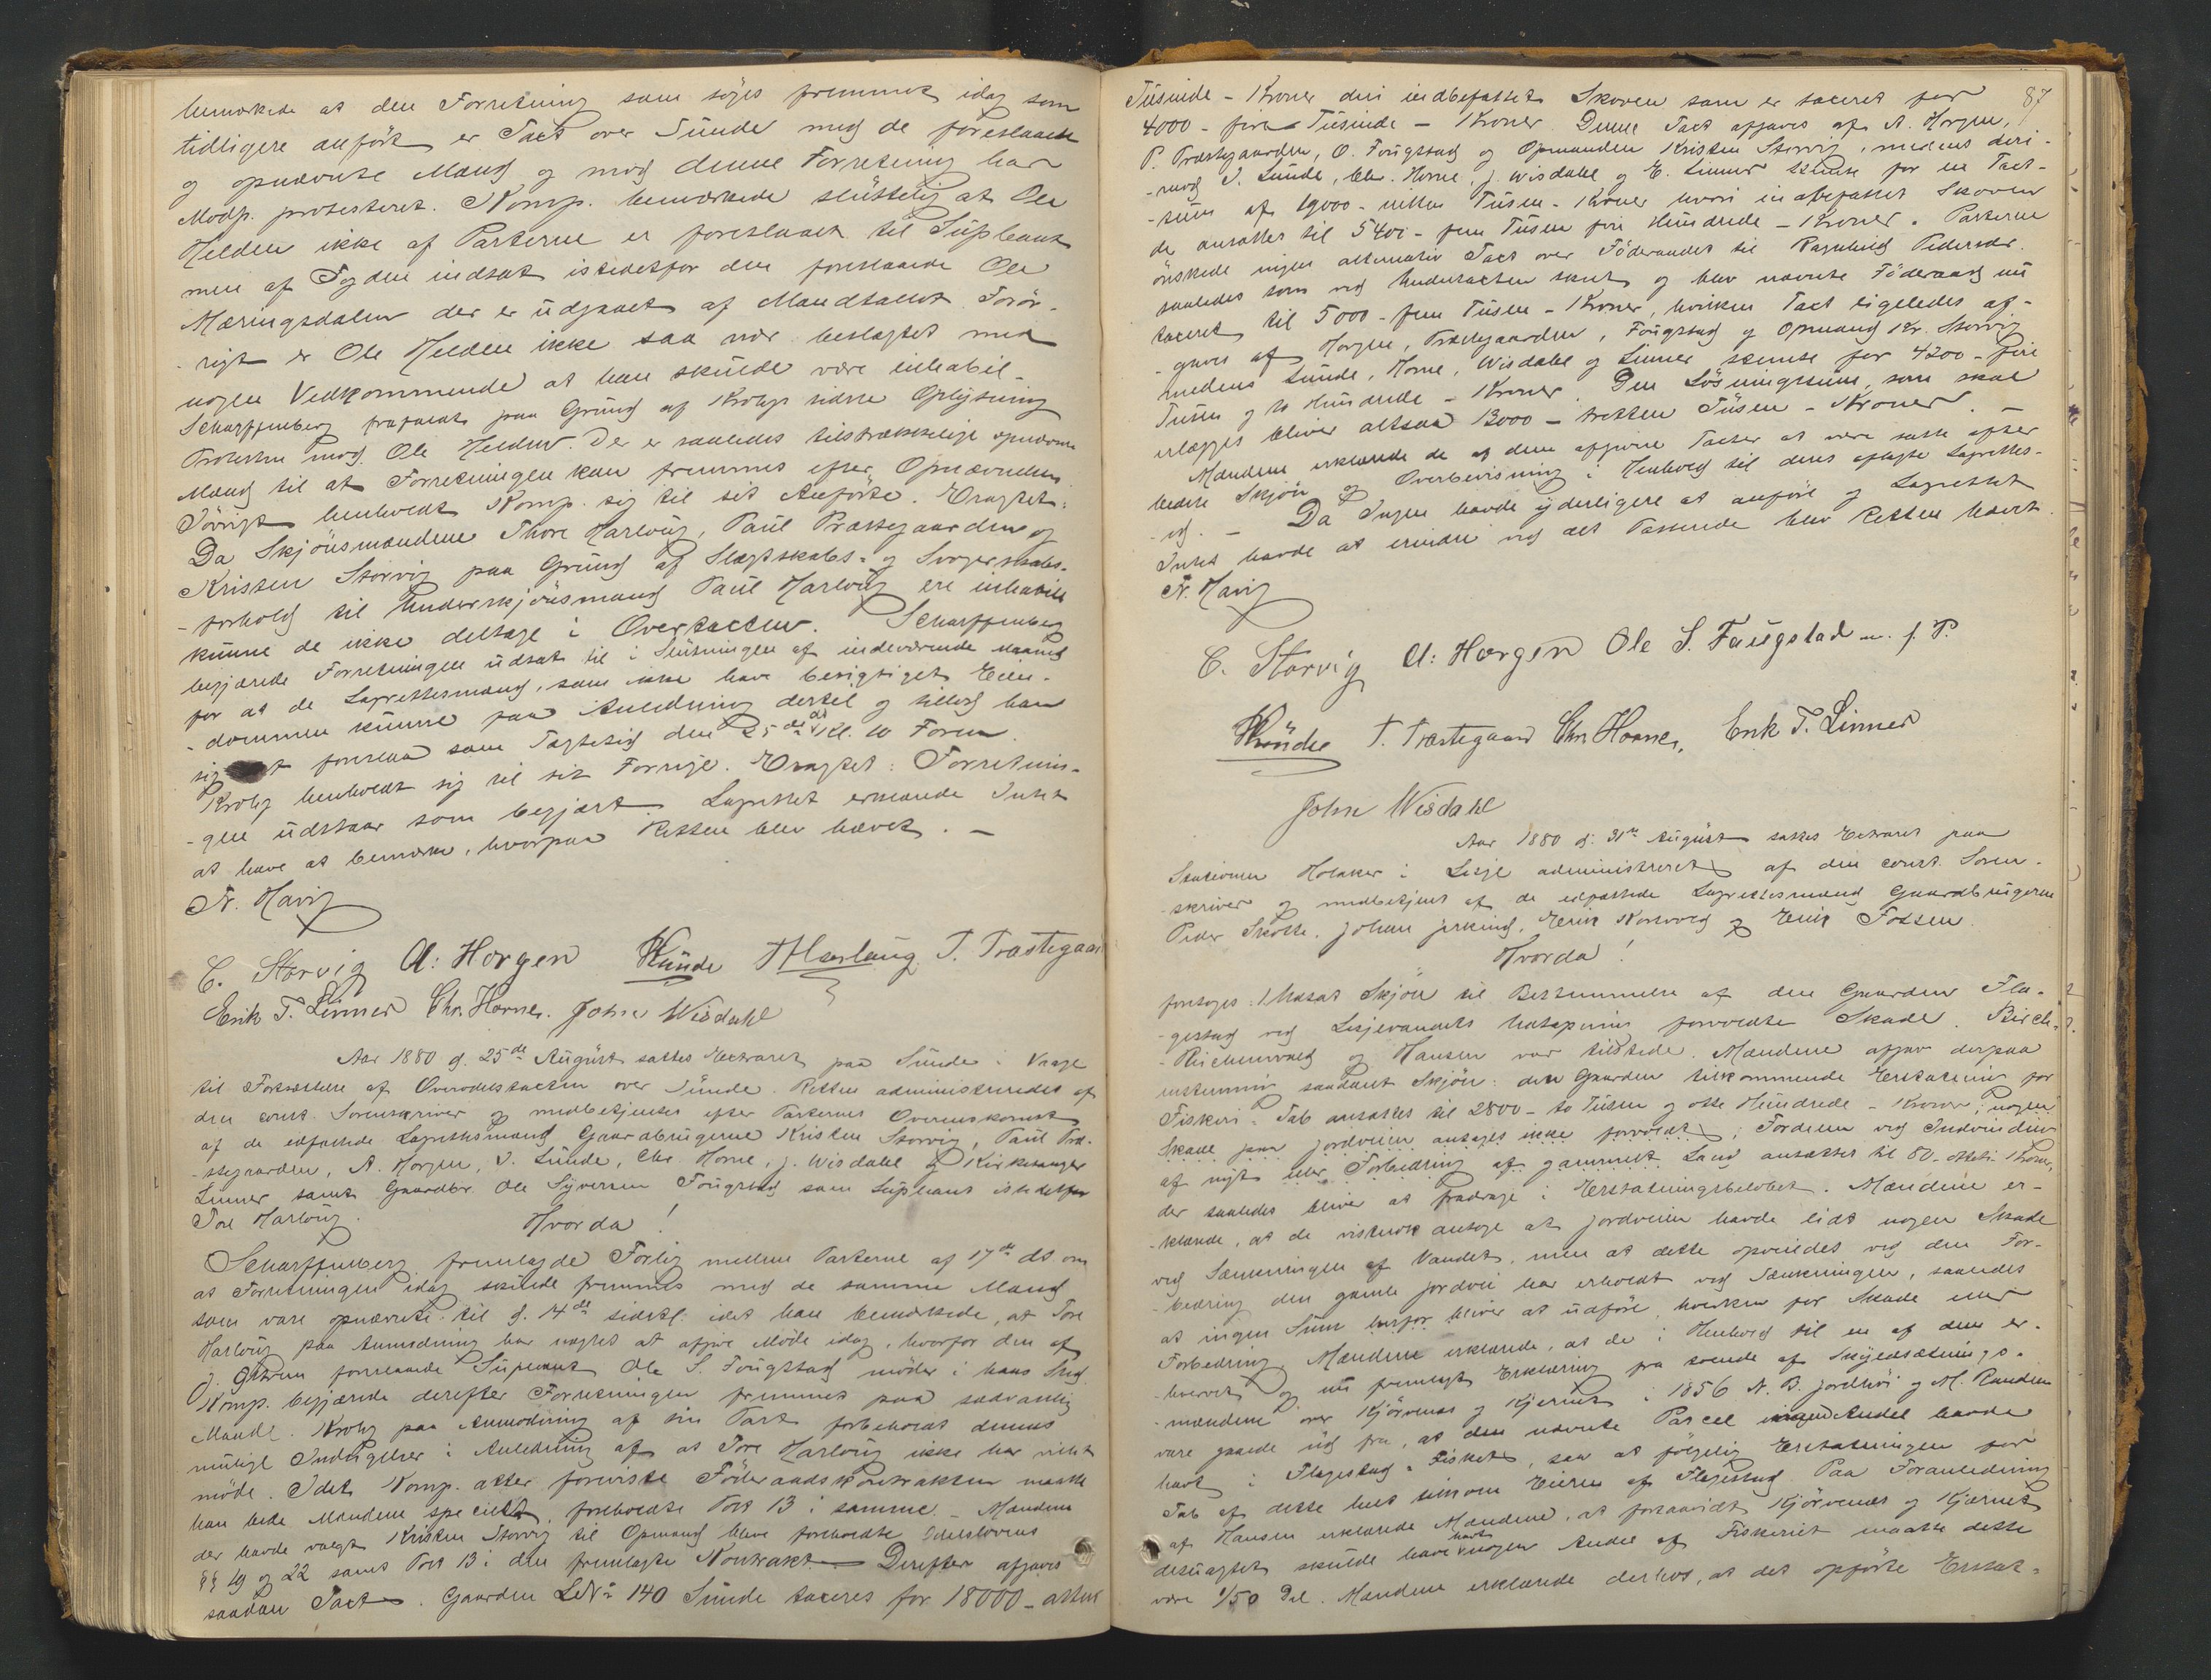 bemærkede at den Forretning som söges fremmet idag som
tidligere anfört er Taxt over Sunde med de foreslaaede
og opnævnte Mænd og mod denne Forretning har
Modp. protesteret. Komp. bemærkede sluttelig at Ole
Helden ikke af Parterne er foreslaaet til Supleant
men af Fogden indsat istedetfor den foreslaaede Ole
Mæringsdalen der er udgaaet af Mandtallet. Forör-
-rigt er Ole Helden ikke saa nær beslægtet med
nogen Vedkommende at han skulde være inhabil-
Scharffenberg frafaldt paa Grund af Krohgs sidste Oplysning
Protesten mod Ole Helden. Der er saaledes tilstrækkelige opnævnte
Mænd til at Forretningen kan fremmes efter Opnævnelsen.
Iövrigt henholdt Komp. sig til sit Anförte. Eragtet:
Da Skjönsmændene Thore Harlaug, Paul Præstegaarden og
Kristen Storvig paa Grund af Slægtskabs- og Svogerskabs-
-forhold til Underskjönsmand Paul Harlaug ere inhabile
kunne de ikke deltage i Overtaxten. Scharffenberg
begjærede Forretningen udsat til i Slutningen af indeværende Maaned
for at de Lagrettesmænd, som ikke have besigtiget Eien-
-dommen kunne faa Anledning dertil og tillod han
sig at foreslaa som Tægtetid den 25de ds Kl. 10 Form.
Krohg henholdt sig til sit Forrige. Eragtet: Forretnin-
-gen udstaar som begjært. Lagrettet erklærede Intet
at have at bemærke, hvorpaa Retten blev hævet. –
N. Havig
C. Storvig A: Horgen Kunde T Harlaug P. Præstegaar
Erik T. Linner Chr. Horne. John Wisdahl
Aar 1880 d. 25de August sattes Extraret paa Sunde i Vaage
til Fortsættelse af Overodelstaxten over Sunde. Retten administreredes af
den const. Sorenskriver og medbetjentes efter Parternes Overenskomst
af de edfæstede Lagrettesmænd Gaardbrugerne Kristen Storvig, Paul Præ-
-stegaarden, A. Horgen, I. Sunde, Chr. Horne, J. Wisdahl og Kirkesanger
Linner samt Gaardbr. Ole Syversen Fougstad som Supleant istedetfor
Tore Harlaug.
Hvorda!
Scharffenberg fremlagde Forlig mellem Parterne af 17de ds om
at Forretningen idag skulde fremmes med de samme Mænd
som vare opnævnte til d. 14de sidstl. idet han bemærkede, at Tore
Harlaug paa Anmodning har nægtet at afgive Möde idag, hvorfor den af
J. foreslaaede Supleant Ole S. Fougstad möder i hans Sted.
Komp. begjærede derefter Forretningen fremmet paa sædvanlig
Maade. Krohg paa Anmodning af sin Part forbeholdt dennes
mulige Indsigelser i Anledning af at Tore Harlaug ikke har villet
möde. Idet Komp. atter foreviste Föderaadskontrakten maatte
han bede Mændene specielt foreholdte Post 13 i samme. – Mændene
der havde valgt Kristen Storvig til Opmand bleve foreholdte Odelslovens
§§ 19 og 22 samt Post 13 i den fremlagte Kontrakt – Derefter afgaves
saadan Taxt. Gaarden LNo 140 Sunde taxeres for 18000 – atten
87
Tusinde – Kroner deri indbefattet Skoven som er taxeret for
4000 – fire Tusinde – Kroner. Denne Taxt afgaves af A. Horgen,
P. Præstegaarden, O. Fougstad og Opmanden Kristen Storvig, medens deri-
-mod I. Sunde, Chr. Horne, J. Wisdahl og E. Linner stemte for en Taxt-
-sum af 19000 – nitten Tusen – Kroner hvori indbefattet Skoven
de ansatte til 5400 – fem Tusen fire Hundrede – Kroner. Parterne
önskede ingen alternativ Taxt over Föderaadet til Ragnhild Pedersdr.
saaledes som ved Undertaxten skeet og blev nævnte Föderaad nu
taxeret til 5000 – fem Tusen – Kroner, hvilken Taxt ligeledes af-
-gaves af Horgen, Præstegaarden, Fougstad og Opmand Kr. Storvig
medens Sunde, Horne, Wisdahl og Linner stemte for 4200 – fire
Tusen og to Hundrede – Kroner. Den Lösningssum, som skal
erlægges bliver altsaa 13000 – tretten Tusen – Kroner. –
Mændene erklærede de af dem afgivne Taxter at være satte efter
bedste Skjön og Overbevisning i Henhold til deres aflagte Lagrettes-
-ed. – Da Ingen havde yderligere at anföre og Lagrettet
Intet havde at erindre ved det Passerede blev Retten hævet.
N. Havig
C. Storvig A: Horgen Ole S. Faugstad m. f. P.
Kunde P. Præstegaard Chr. Horne, Erik T. Linner
John Wisdahl
Aar 1880 d. 31te August sattes Extraret paa
Stationen Holaker i Lesje administreret af den const. Soren-
-skriver og medbetjent af de edfæstede Lagrettesmænd Gaardbrugerne
Peder Skotte, Johan Jerkind, Erik Norvold og Erik Fossen.
Hvorda!
foretoges: Udsat Skjön til Bestemmelse af den Gaarden Fla-
-gestad ved Lesjevandets Udtapning forvoldte Skade. Birch-
-Reichenwald og Hansen var tilstede. Mændene afgav derpaa
enstemmig saadant Skjön: den Gaarden tilkommende Erstatning for
Fiskeri-Tab ansættes til 2800 – to Tusen og otte Hundrede – Kroner; nogen
Skade paa Jordveien antages ikke forvoldt; Fordelen ved Indvinding
af nyt eller Forbedring af gammelt Land ansættes til 80 – otteti Kroner,
der saaledes bliver at fradrage i Erstatningsbelöbet. Mændene er-
-klærede, at de vistnok antoge at Jordveien havde lidt nogen Skade
ved Sænkningen af Vandet, men at dette opveiedes ved den For-
-bedring den gamle Jordvei har erholdt ved Sænkningen, saaledes
at ingen Sum herfor bliver at udföre hverken for Skade eller
Forbedring. Mændene erklærede, at de i Henhold til en af dem er-
-hvervet og nu fremlagt Erklæring fra tvende af Skyldsætnings-
-mændene over Kjörrenes og Kjernet i 1856 N. B. Jordhøi og M. Randen
vare gaaede ud fra, at den nævnte Parcel ingen Andel havde
havt i Flagestad-Fisket, saa at fölgelig Erstatningen for
Tab af dette helt tilkom Eieren af Flagestad. Paa Foranledning
af Hansen erklærede Mændene, at forsaavidt Kjörrenes og Kjernet
desuagtet skulde have havt nogen Andel af Fiskeriet maatte dette
være 1/50 Del. Mændene erklærede derhos, at det opförte Erstat-